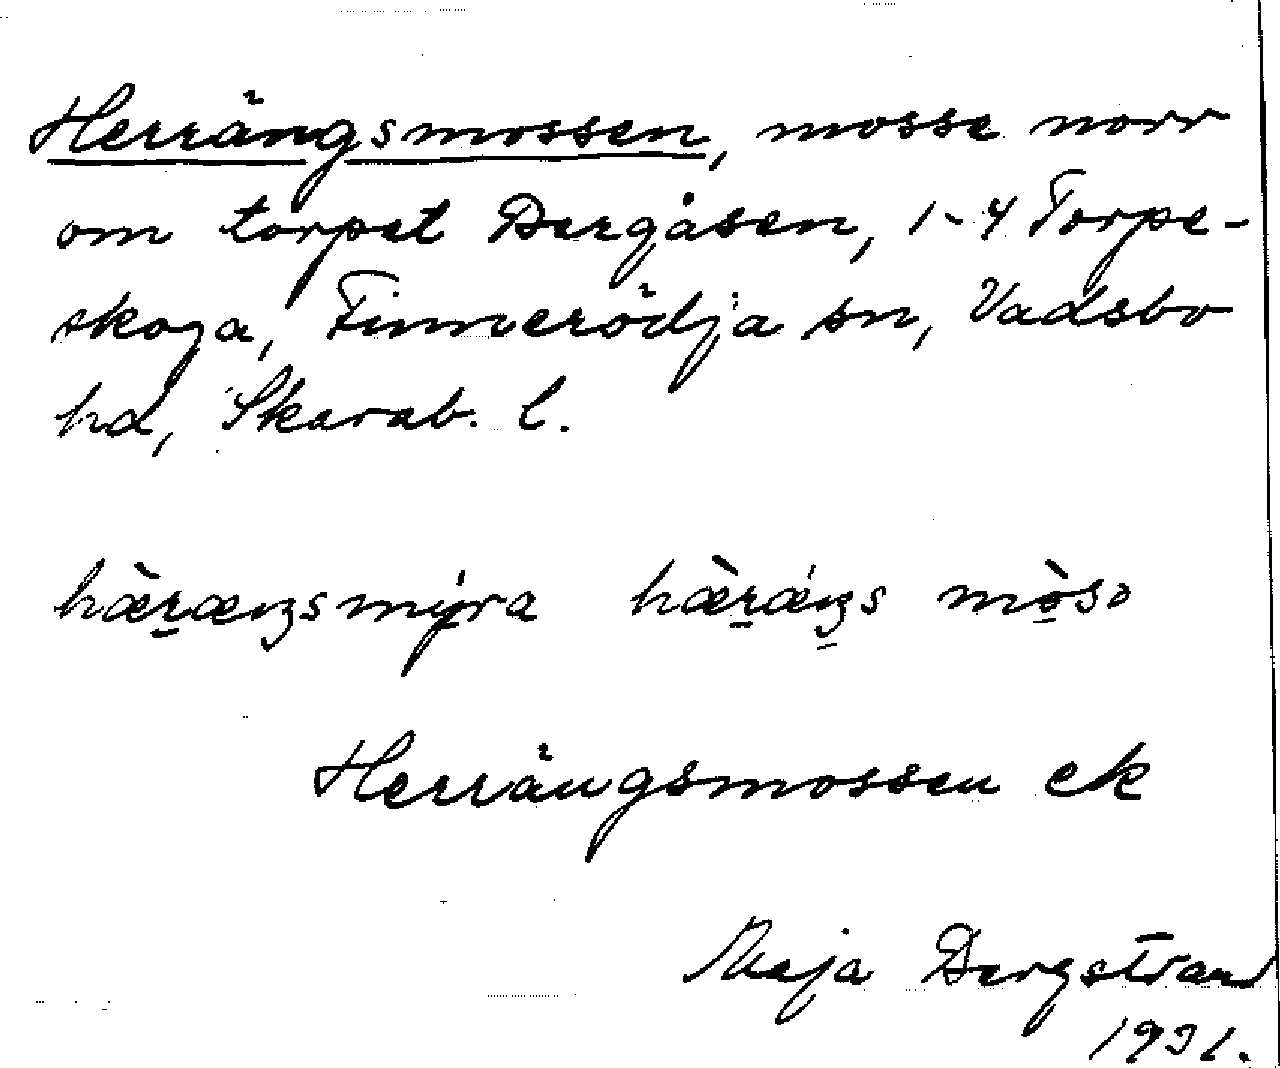 Herrängsmossen, mosse norr
om torpet Bergåsen, 1-4 Torpe-
skoga, Finnerödja sn, Vadsbo
hd, Skarab. l.
Herrängsmossen ek
Maja Bergstrand
1931.